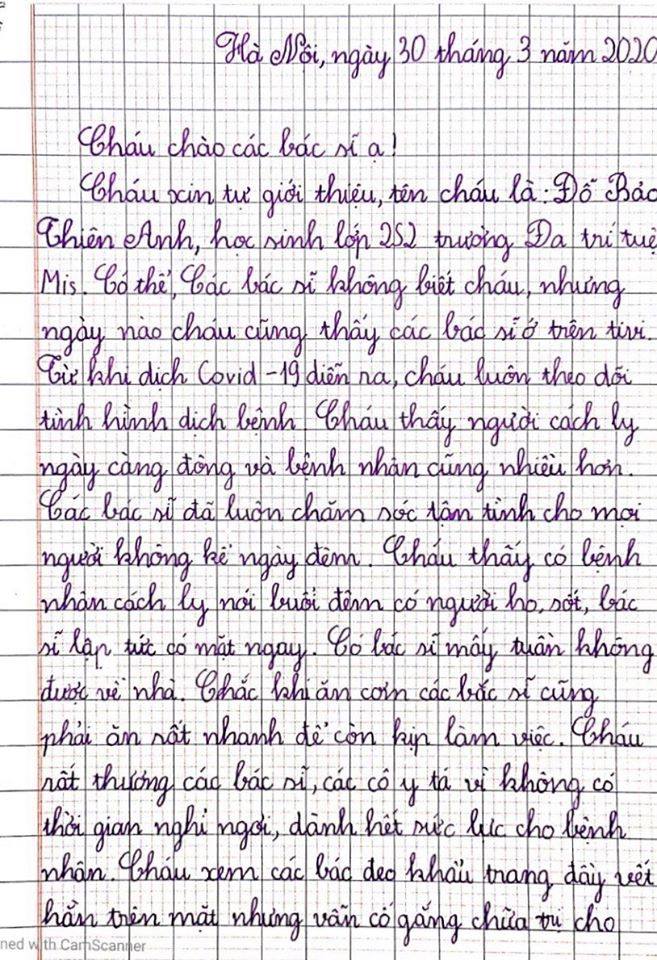 Hà Nội, ngày 30 tháng 3 năm 2020
Cháu chào các bác sĩ ạ!
Cháu xin tự giới thiệu, tên cháu là: Đỗ Bảo
Thiên Anh, học sinh lớp 2S2 trường Đa trí tuệ
Mis. Có thể, Các bác sĩ không biết cháu, nhưng
ngày nào cháu cũng thấy các bác sĩ ở trên tivi.
Từ khi dịch Covid-19 diễn ra, cháu luôn theo dõi
tình hình dịch bệnh. Cháu thấy người cách ly
ngày càng đông và bệnh nhân cũng nhiều hơn.
Các bác sĩ đã luôn chăm sóc tận tình cho mọi
người không kể ngày đêm. Cháu thấy có bệnh
nhân cách ly nói buổi đêm có người ho, sốt, bác
sĩ lập tức có mặt ngay. Có bác sĩ mấy tuần không
được về nhà. Chắc khi ăn cơm các bác sĩ cũng
phải ăn rất nhanh để còn kịp làm việc. Cháu
rất thương các bác sĩ, các cô y tá vì không có
thời gian nghỉ ngơi, dành hết sức lực cho bệnh
nhân. Cháu xem các bác đeo khẩu trang đầy vết
hằn trên mặt nhưng vẫn cố gắng chữa trị cho
ned with CamScanner